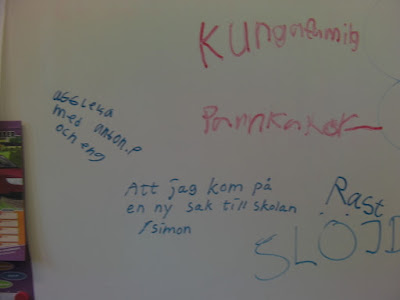 Kungafamilj
Pannkakor
att leka
med anton.p
och eng
Att jag kom på
en ny sak till skolan
/simon
Rast
SLÖJD